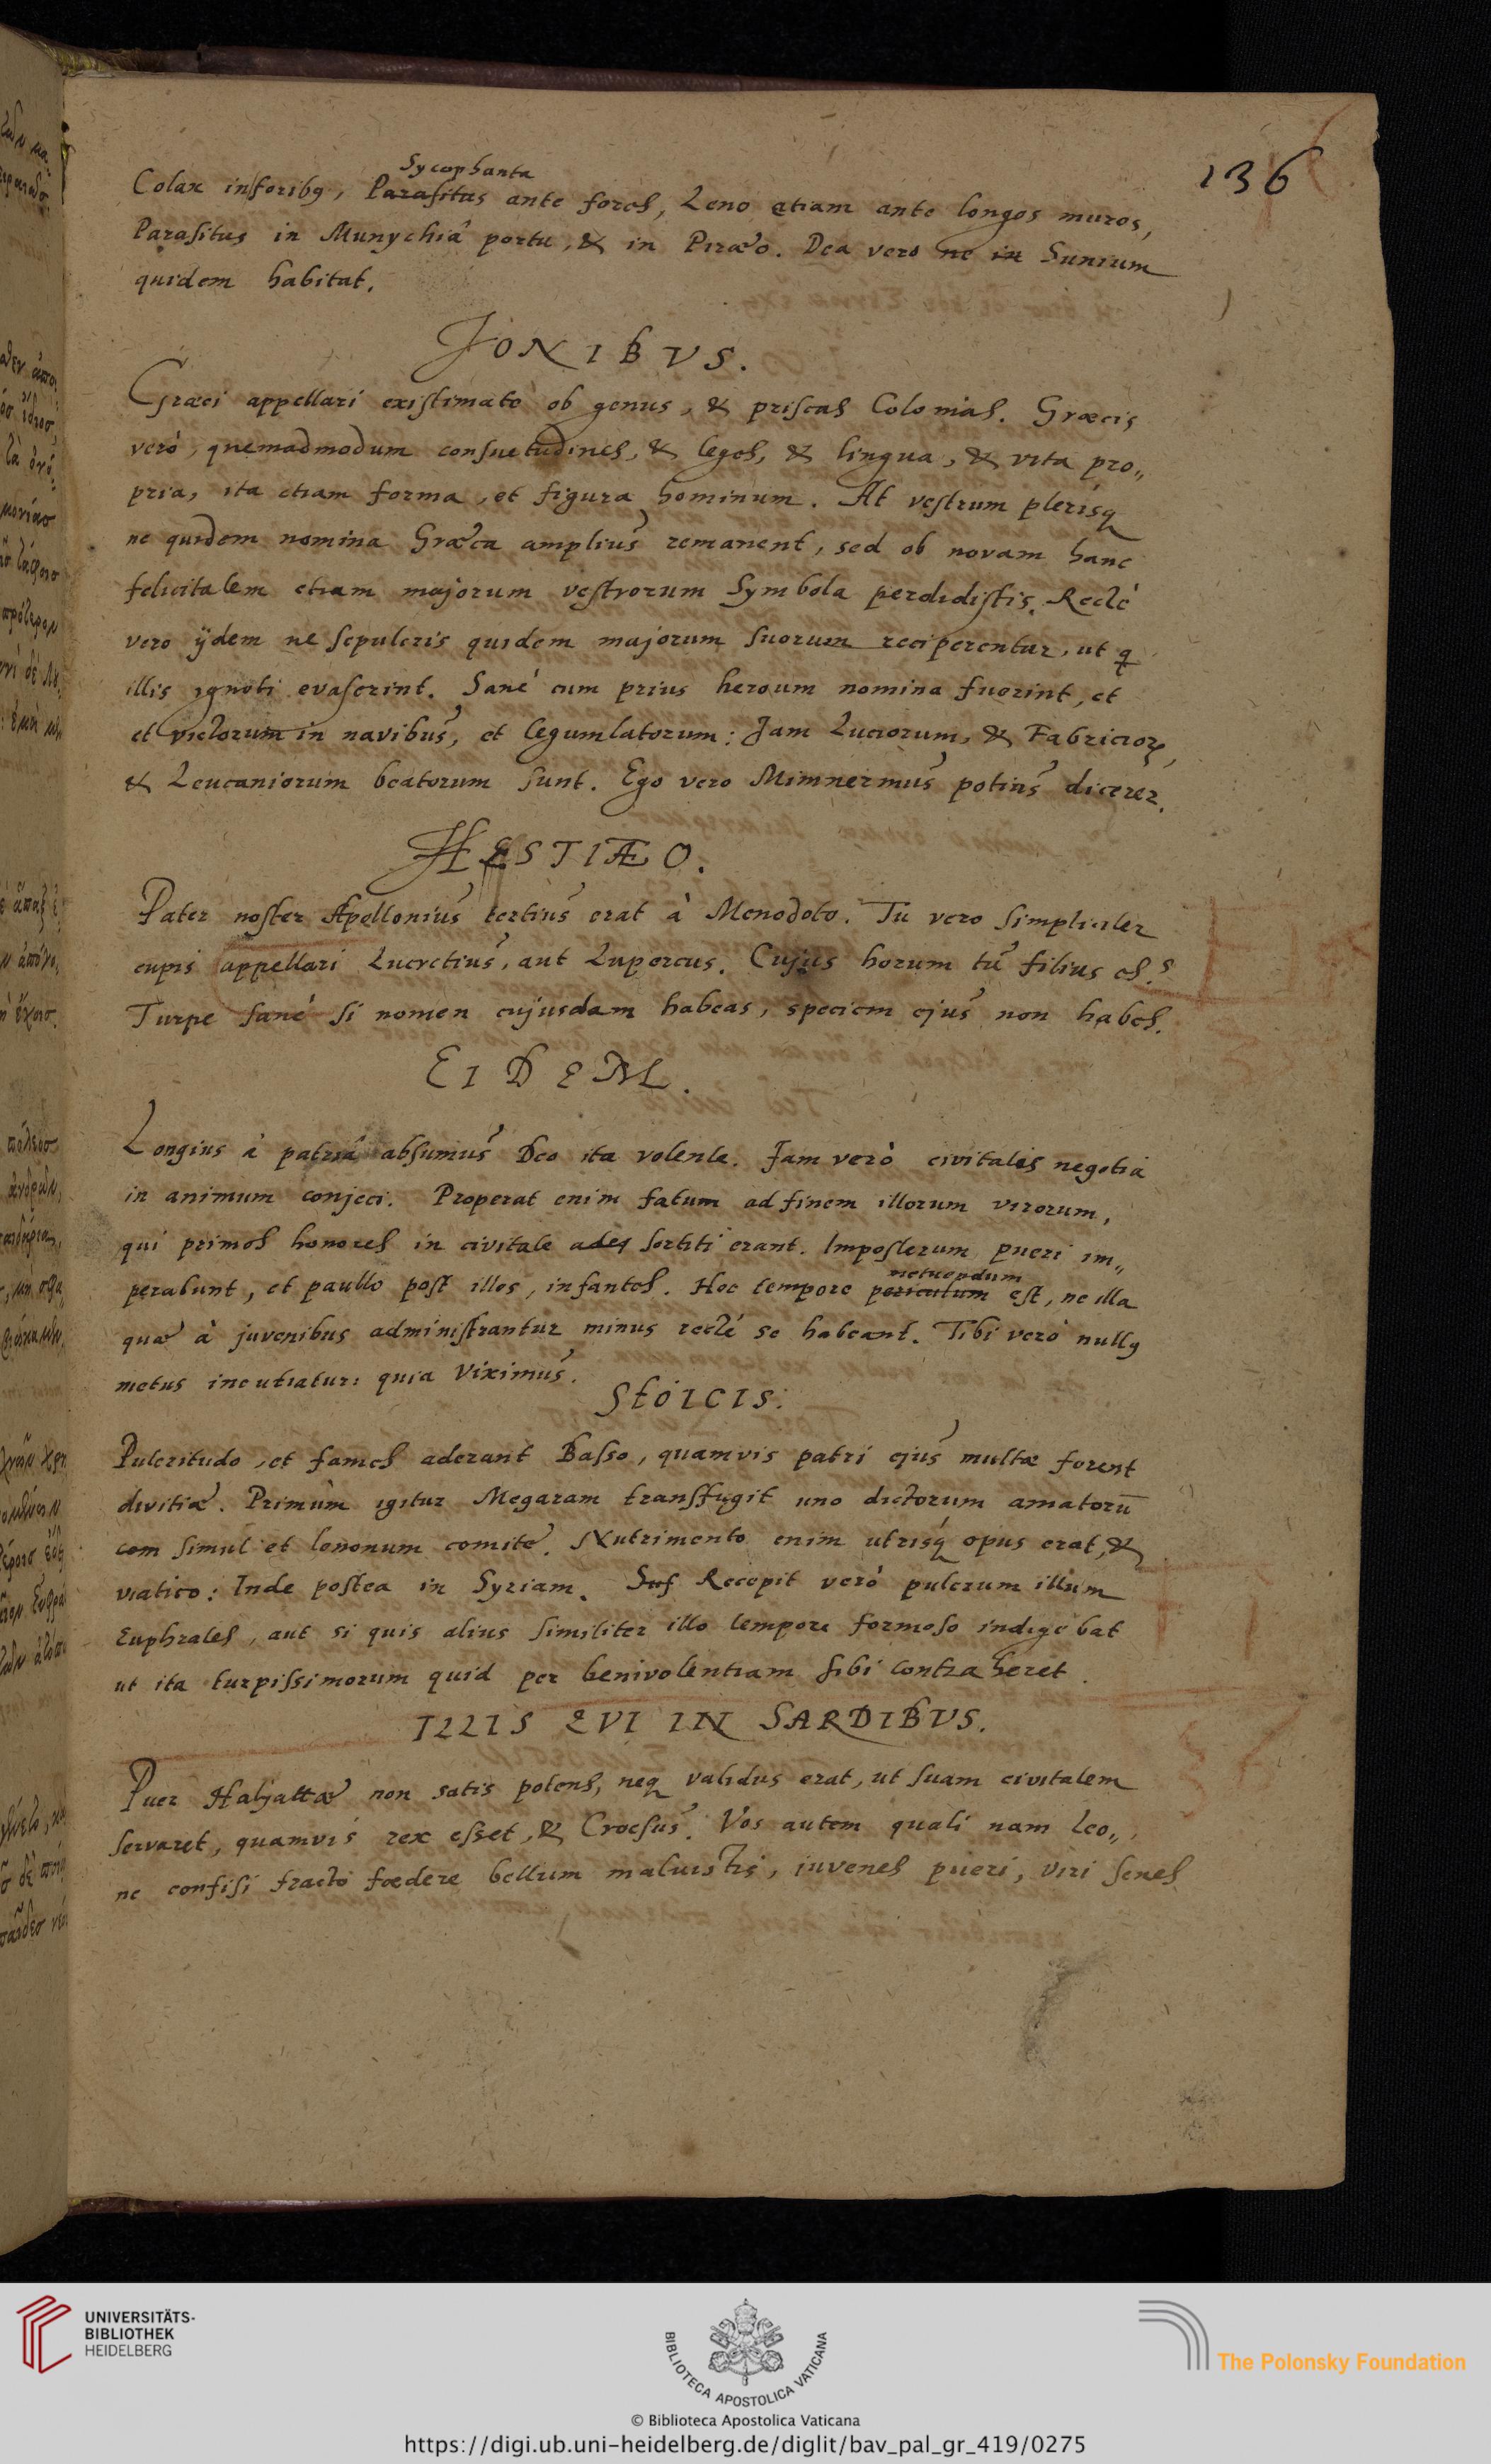 136
Sycophanta
Colax in foribq, Parasitus ante fores, Leno etiam ante longos muros,
Parasitus in Munychiâ portu, & in Piræo. Dea vero ne in Sunium
quidem habitat.
JONIBVS.
Græci appellari existimatô ob genus, & priscas Colonias. Græcis
verò, quemadmodum consuetudines, & leges, & lingua, & vita pro„
pria, ita etiam forma, et figura hominum. At vestrum plerisq
ne quidem nomina Græca ampliùs remanent, sed ob novam hanc
felicitatem etiam majorum vestrorum Symbola perdidistis. Rectè
vero ÿdem ne sepulcris quidem majorum suorum reciperentur, ut q
illis ignoti evaserint. Sanè cum prius heroum nomina fuerint, et
et victorum in navibus, et legumlatorum: Jam Luciorum, & Fabricior,
& Leucaniorum beatorum sunt. Ego vero Mimnermus potius dicerer.
HESTIÆO.
Pater noster Apellonius tertius erat à Menodoto. Tu vero simpliciter
cupis appellari Lucretius, aut Lupercus. Cujus horum tu filius es.s
Turpe sanè si nomen cujusdam habeas, speciem ejus non habes.
EIDEM.
Longius à patriâ absumus Deo ita volente. Jam verò civitatis negotia
in animum conjeci. Properat enim fatum ad finem illorum virorum,
qui primos honores in civitate adeq sortiti erant. Imposterum pueri im„
metuendum
perabunt, et paullo post illos, infantes. Hoc tempore periculum est, ne illa
quæ à juvenibus administrantur minus rectè se habeant. Tibi verò nullq
metus incutiatur: quia Viximus.
StoICIS.
Pulcritudo, et fames aderant Basso, quamvis patri ejus multæ forent
divitiæ. Primùm igitur Megaram transfugit uno dictorum amatorū
com simul et lenonum comite. Nutrimento enim utrisq opus erat, &
viatico: Inde postea in Syriam. Suf Recepit verò pulcrum illum
Euphrates, aut si quis alius similiter illo tempore formoso indigebat
ut ita turpissimorum quid per benivolentiam sibi contraheret.
ILLIS QVI IN SARDIBVS.
Puer Halyattæ non satis potens, neq validus erat, ut suam civitatem
servaret, quamvis rex esset, & Croesus. Vos autem quali nam leo„
ne confisi fracto fœdere bellum maluistis, iuvenes pueri, viri senes
UNIVERSITÄTS-
BIBLIOTHEK
HEIDELBERG
BIBLIOTECA APOSTOLICA VATICANA
The Polonsky Foundation
© Biblioteca Apostolica Vaticana
https://digi.ub.uni-heidelberg.de/diglit/bav_pal_gr_419/0275